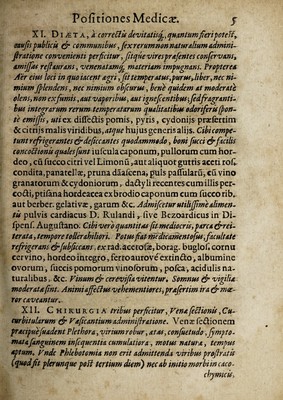 Positiones Medicæ. 5
XI. DIÆTA, à correctu devitatiq́;, quantum fieri potest,
ausis publicis & communibus, sex rerum non naturalium admini-
stratione convenienti perficitur, sitq́ue vires præsentes conservans,
amissas restaurans, venenatamq́; materiam impugnans. Propterea
Aër eius loci in quo iacent agri, sit temperatus, purus, liber, nec ni-
mium splendens, nec nimium obscurus, benè quidem at moderatè
olens, non ex fumis, aut vaporibus, aut ignescentibus, sed fragranti-
bus integrarum rerum temperatarum qualitatibus odoriferis spon-
te emissis, aui ex dissectis pomis, pyris, cydonijs præsertim
& citrijs malis viridibus, atque hujus generis alijs. Cibi compe-
tunt refrigerantes & desiccantes quodammodo, boni succi & facilis
concoctionis quales sunt iuscula caponum, pullorum cum hor-
deo, cū succo citri vel Limonū, aut aliquot guttis aceti ros.
condita, panatellæ, pruna dāascena, puls passularū, cū vino
granatorum & cydoniorum, dactyli recentes cum illis per-
cocti, ptisana hordeacea ex brodio caponum cum succo rib,
aut berber. gelativæ, garum &c. Admiscetur utilissimè alimen-
tū pulvis cardiacus D. Rulandi, sive Bezoardicus in Di-
spens. Augustano. Cibi verò quantitas sit mediocris, parca & rei-
terata, tempore tollerabiliori. Potus fiat medicamentosus, facultate
refrigerans & subsiccans. ex rad. acetosæ, borag. buglos. cornu
cervino, hordeo integro, ferro aurové extincto, albumine
ovorum, succis pomorum vinosorum, posca, acidulis na-
turalibus, &c. Vinum & cerevisia vitentur. Somnus & vigilia
moderata sint. Animi affectus vehementiores, præsertim ira & mæ-
ror caveantur.
XII. CHIRURGIA tribus perficitur, Venæ sectionis, Cu-
curbitularum & Vesicantium administratione. Venæ sectionem
præcipuè suadent Plethora, virium robur, ætas, consuetudo, sympto-
mata sanguinem insequentia cumulatiora, motus naturæ, tempus
aptum. Unde Phlebotomia non erit admittenda viribus prostratis
(quod fit plerunque post tertium diem) nec ab initio morbi in caco-
chymicis.